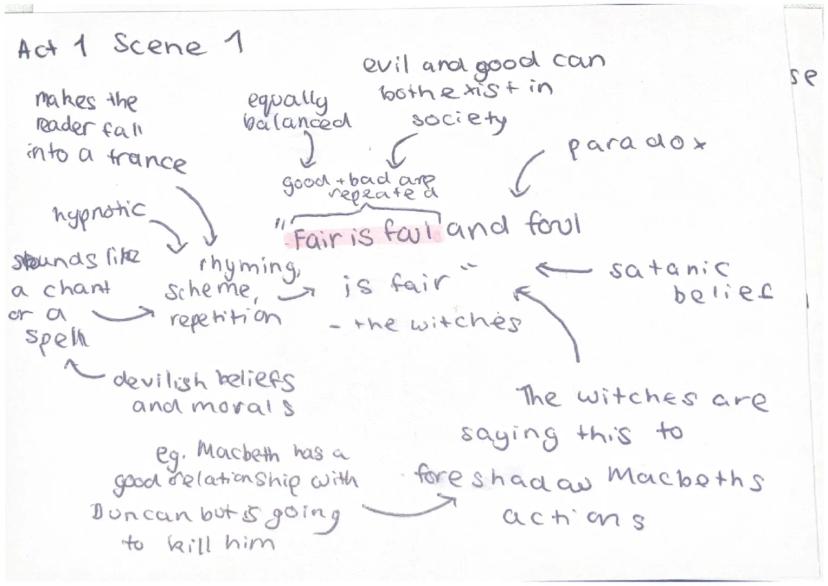 Act 1 Scene 1
se
makes the
reader fall
into a trance
equally
balanced
evil and good can
both exist in
society
paradox
good + bad are
repeated
hypnotic
"Fair is foul and foul
is fair"
- the witches
sounds like
a chant
or a
spell
rhyming,
scheme,
repetition
satanic
belief
devilish beliefs
and morals
The witches are
saying this to
foreshadow Macbeths
actions
eg. Macbeth has a
good relationship with
Duncan but is going
to kill him